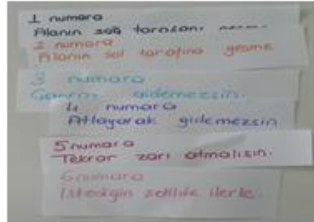 1 numara
Alanın sağ tarafını
2 numara
Alanın sol tarafına geçme
3 numara
gidemezsin.
4 numara
Atlayarak gidemezsin
5 numara
Tekrar zarı atmalısın.
6 numara
İstediğin şekilde ilerle.